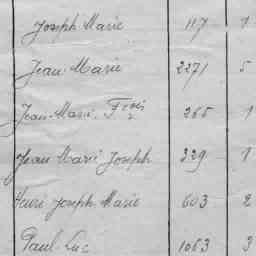 Joseph Marie 117 1
Jean Marie 2271 5
Jean Marie Fçois 265 1
Jean Marie Joseph 329 1
Henri Joseph Marie 603 2
Paul Luc 1063 3